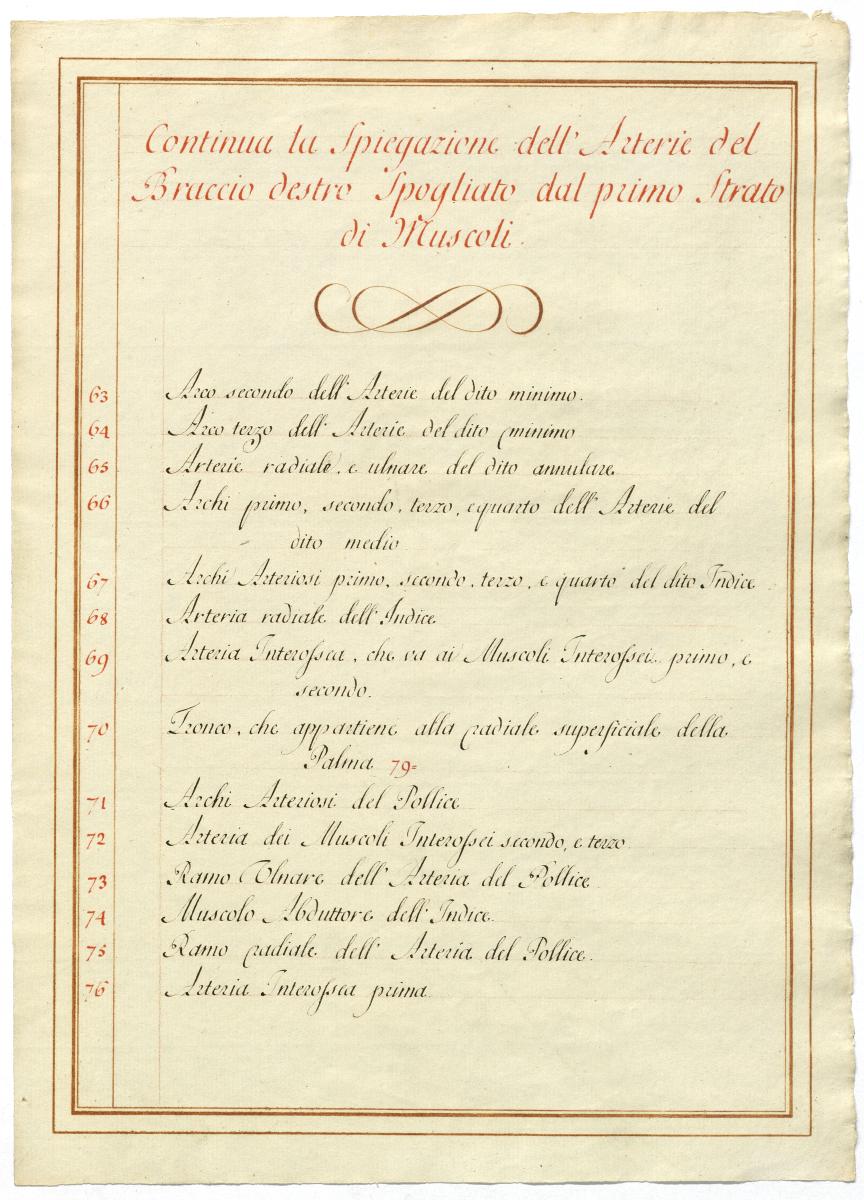 Continua la Spiegazione dell' Arterie del
Braccio destro Spogliato dal primo Strato
di Muscoli.
63 Arco secondo dell' Arterie del dito minimo.
64 Arco terzo dell' Arterie del dito minimo
65 Arterie radiale, e ulnare del dito annulare
66 Archi primo, secondo, terzo, e quarto dell' Arterie del
dito medio
67 Archi Arteriosi primo, secondo, terzo, e quarto del dito Indice
68 Arteria radiale dell' Indice
69 Arteria Interossea, che va ai Muscoli Interossei primo, e
secondo.
70 Tronco, che appartiene alla radiale superficiale della
Palma 79=
71 Archi Arteriosi del Pollice
72 Arteria dei Muscoli Interossei secondo, e terzo
73 Ramo Ulnare dell' Arteria del Pollice
74 Muscolo Abduttore dell' Indice.
75 Ramo radiale dell' Arteria del Pollice.
76 Arteria Interossea prima